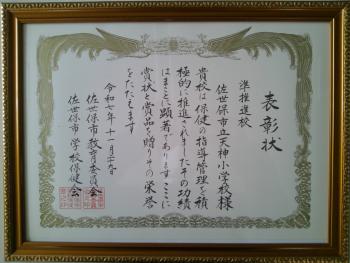 表彰状
準推進校
佐世保市立天神小学校様
貴校は保健の指導管理を積
極的に推進されましたその功績
はまことに顕著でありますここに
賞状と賞品を贈りその栄誉
をたたえます
令和七年十一月二十九日
佐世保市教育委員会
佐世保市学校保健会